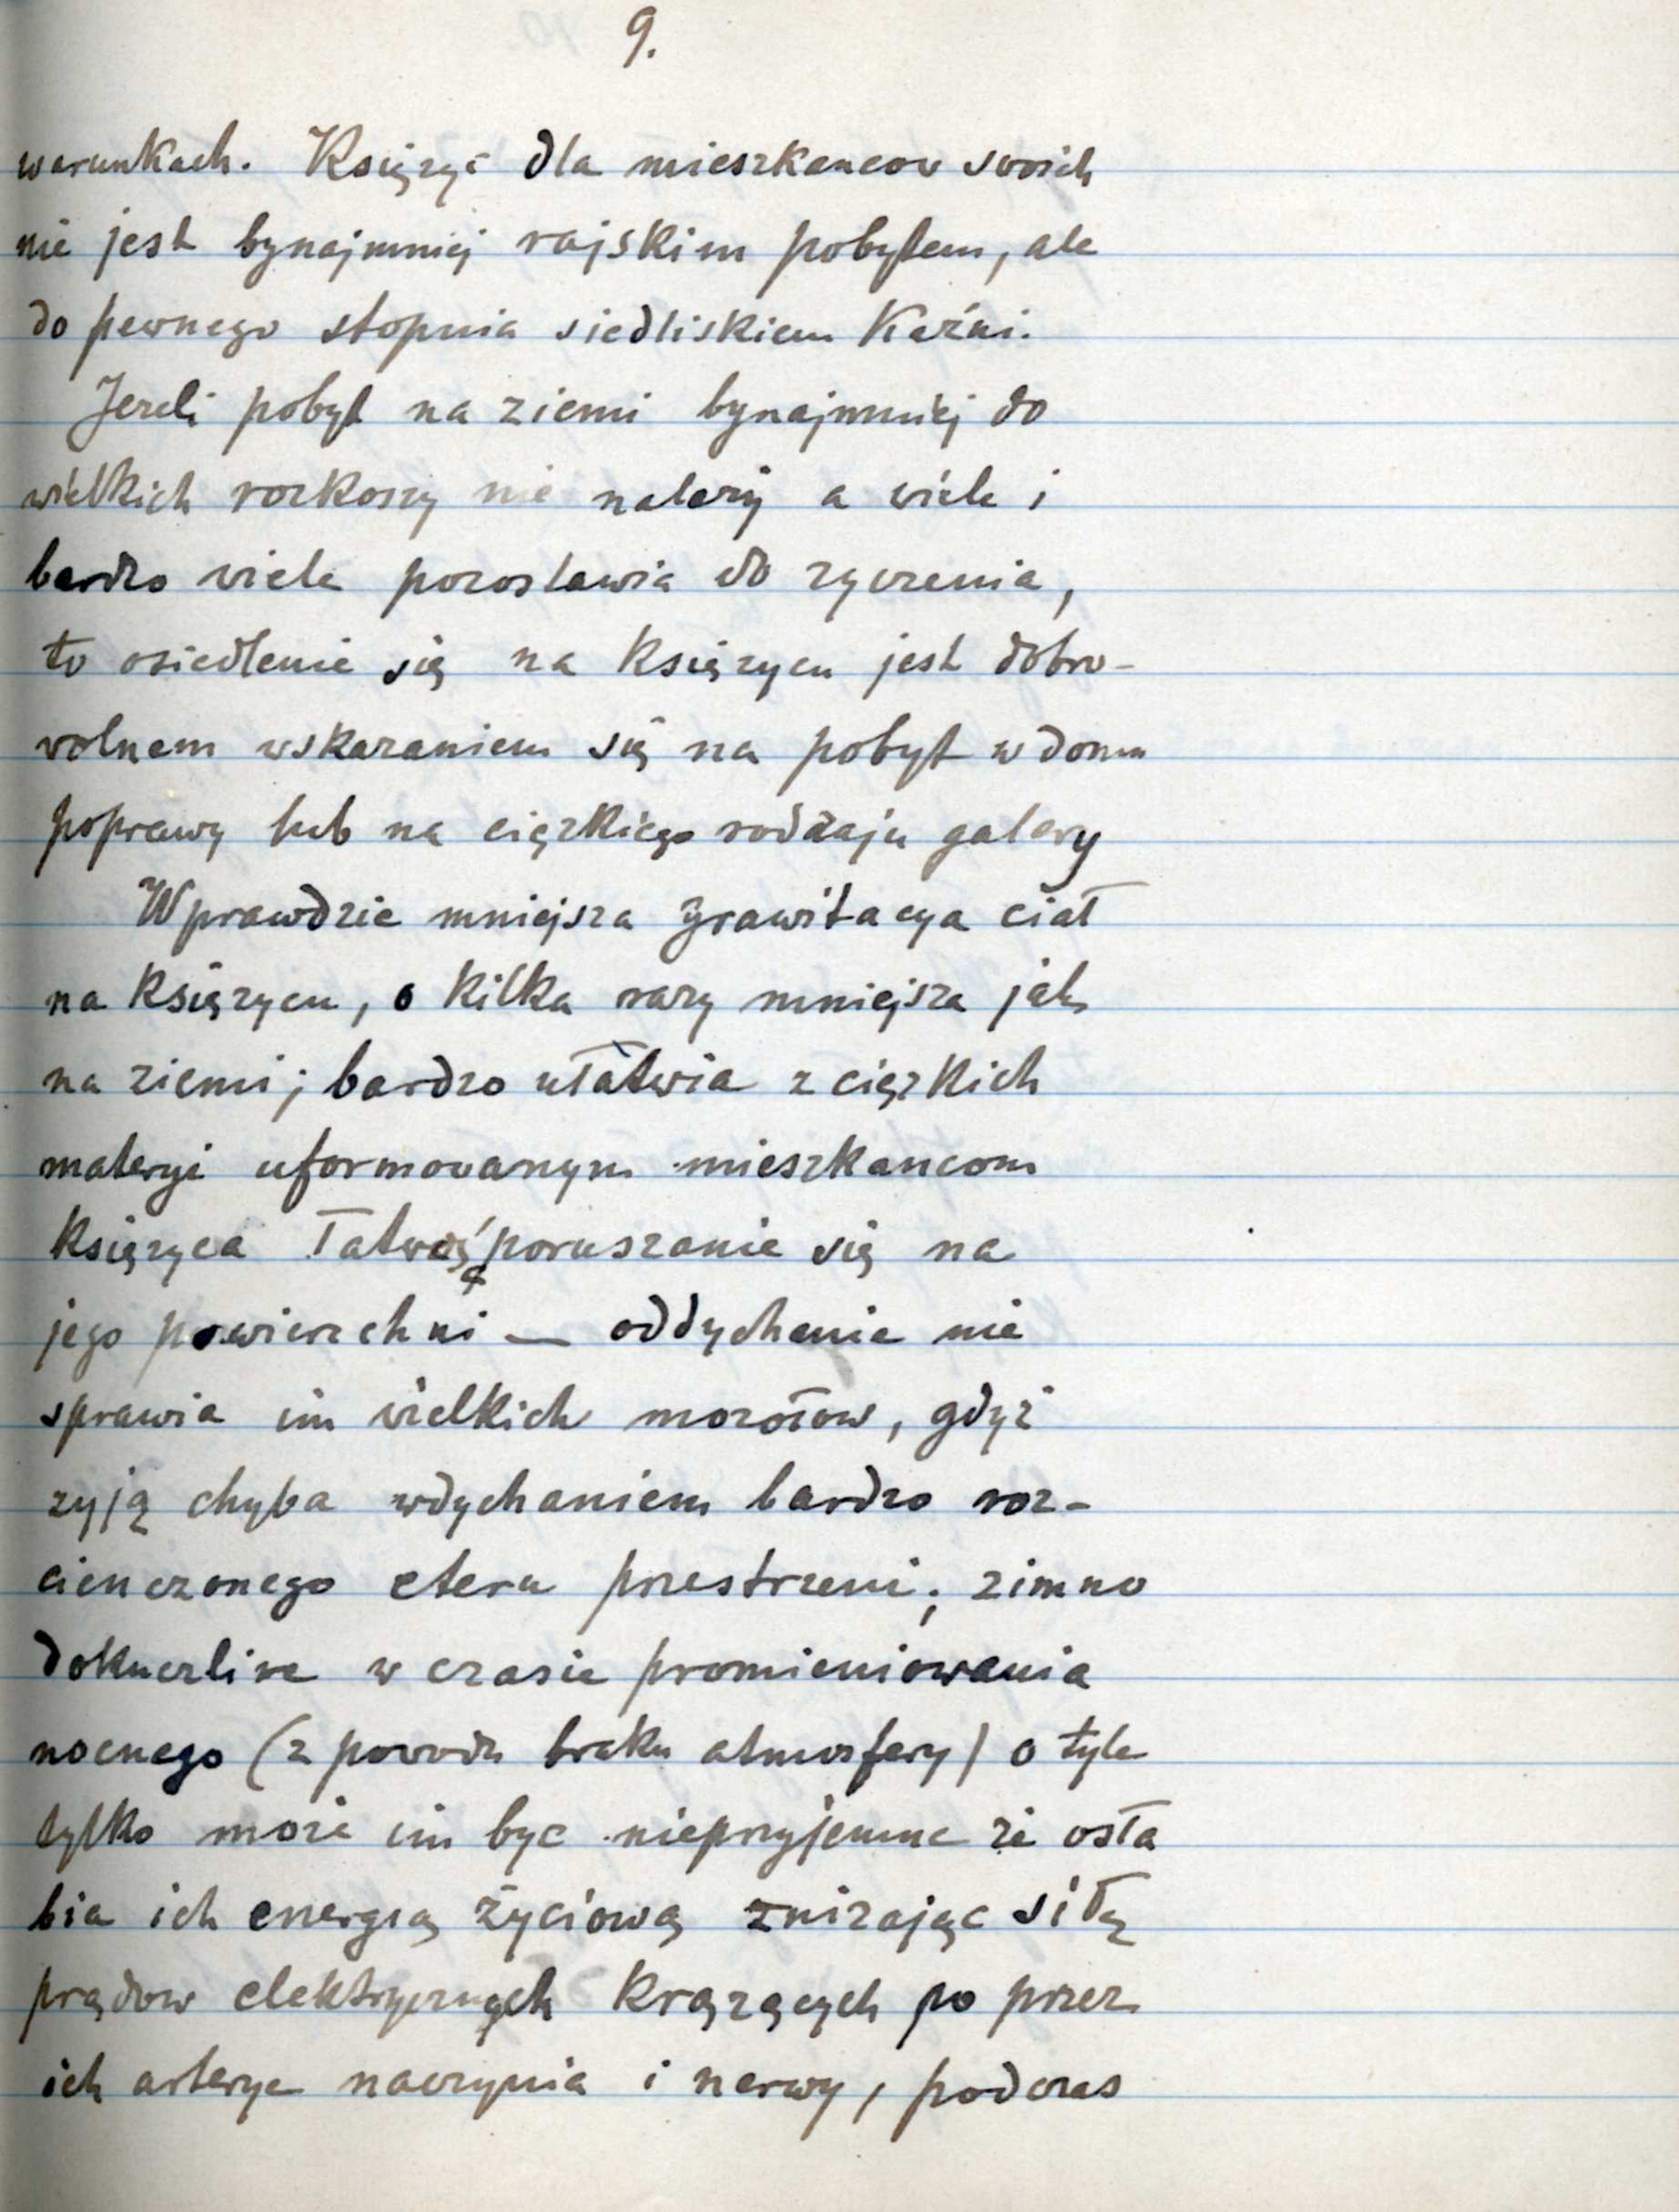 9.
warunkach. Księżyc dla mieszkancow swoich
nie jest bynajmniej rajskim pobytem, ale
do pewnego stopnia siedliskiem Kaźni.
Jezeli pobyt na ziemi bynajmniej do
wielkich rozkoszy nie nalezy a wiele i
bardzo wiele pozostawia do zyczenia,
to osiedlenie się na Księzycu jest dobro-
wolnem wskazaniem się na pobyt w domu
poprawy lub na ciężkiego rodzaju galery
Wprawdzie mniejsza grawitacya ciał
na Księzycu, o kilka razy mniejsza jak
na ziemi; bardzo ułatwia z cięzkich
materyi uformowanym mieszkancom
Księzyca łatwość poruszanie się na
jego powierzchni — oddychanie nie
sprawia im wielkich mozołow, gdyż
zyją chyba wdychaniem bardzo roz-
cienczonego eteru przestrzeni; zimno
dokuczliwe w czasie promieniowania
nocnego (z powodu braku atmosfery) o tyle
tylko może im byc nieprzyjemne że osła
bia ich energią życiową znizając siłę
prądow elektrycznych Krązących po przez
ich arterye naczynia i nerwy, podczas